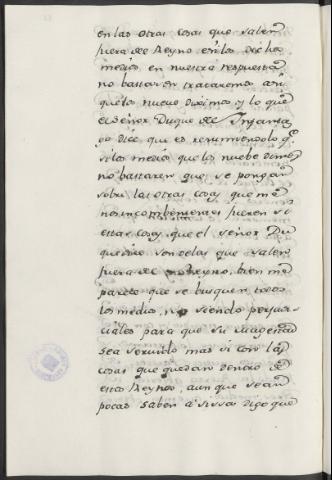 en las otras cosas que salen
fuera del Reyno en los dichos
medios, en nuestra respuesta
no bastar en trataremos
que los nueve diximos y lo que
el Señor Duque del Infanta
go dice, que es resumiendolo q.e
si los medios que los nuebe dimos
no bastaren, que se pongan
sobre las otras cosas que me
nos incombenientes fueren si
estas cosas, que el Señor Du
que dice son de las que salen
fuera del Reyno, bien me
parece que se busquen todos
los medios, no siendo perjudi
ciales para que su magestad
sea servido mas si con las
cosas que quedan dentro de
estos Reynos, aunque sean
pocas saben a sissa digo que